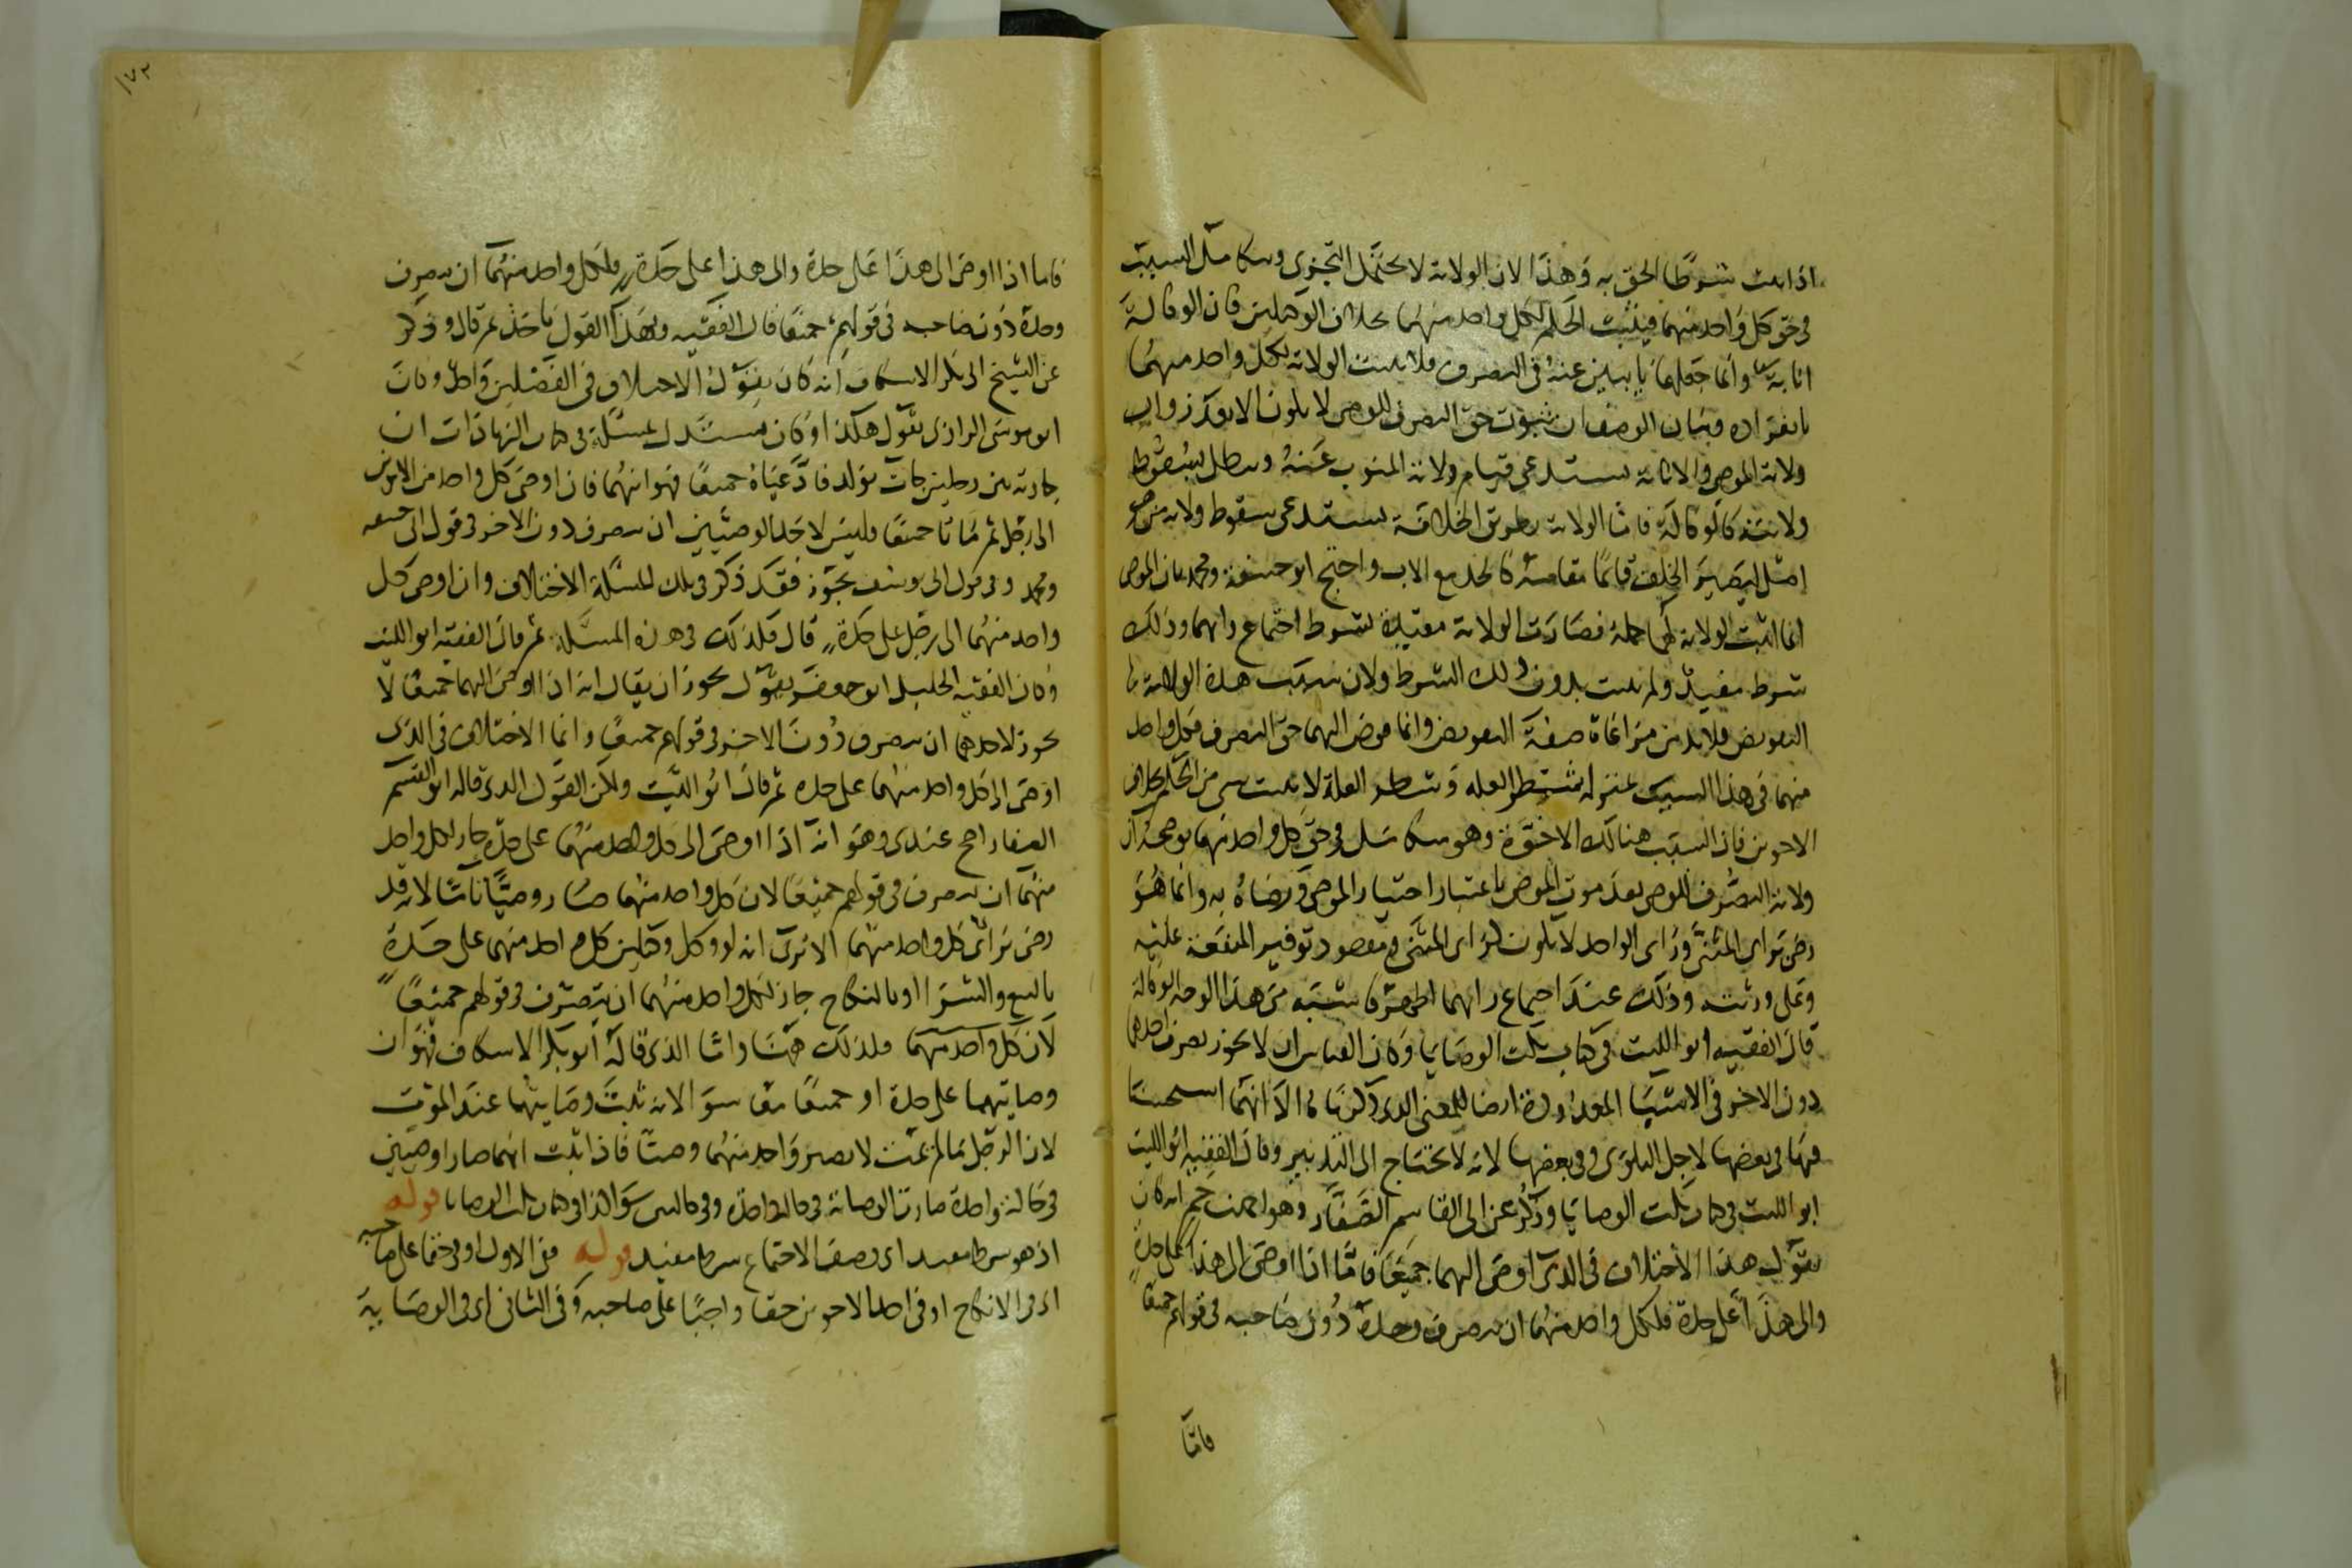 اذا ثبت شرطًا لحق به وهذا لان الولاية لا تحتمل التجزى وتكامل السبب
فى حق كل واحد منهما فيثبت الحكم لكل واحد منهما بخلاف الوكيلين فان الوكالة
انابة وانما جعلهما نايبين عنه فى التصرف فلا تثبت الولاية لكل واحد منهما
بانفراده وبيان الوصف ان ثبوت حق التصرف للوصى لا يكون الا بعد زوال
ولاية الموصى والانابة يستدعى قيام ولاية المنوب عنه وتبطل بسقوط
ولايته كالوكالة فاما الولاية بطريق الخلافة يستدعى سقوط ولاية من هو
اصل ليصير الخلف قائمًا مقامه كالجد مع الاب واحتج ابو حنيفة ومحمد بان الموصى
انما اثبت الولاية لهما جملة فصارت الولاية مقيدة بشرط اجتماع رايهما وذلك
شرط مفيد ولم تثبت بدون ذلك الشرط ولان سبب هذه الولاية
التفويض فلا بد من مراعاة صفة التفويض وانما فوض اليهما حق التصرف فكل واحد
منهما فى هذا السبب بمنزلة شطر العله وشطر العلة لا يثبت شى من الحكم بخلاف
الاخوين فان السبب هنالك الاخوة وهو متكامل فى حق كل واحد منهما
ولاية التصرف للوصى بعد موت الموصى باعتبار اختيار الموصى ورضاه به وانما هو
رضى براى المثنى وراى الواحد لا يكون كراى المثنى ومقصوده توفير المنفعة عليه
وعلى ورثته وذلك عند اجتماع رايهما اظهر من هذا الوجه الوكالة
قال الفقيه ابو الليث فى كتاب نكت الوصايا وكان القياس ان لا يجوز تصرف احدهما
دون الاخر فى الاشيا المعدودة ايضا للمعنى الذى ذكرنا الا انهما استحسنا
فيها فى بعضها لاجل البلوى وفى بعضها لانه لا يحتاج الى التدبير وقال الفقيه ابو الليث
ابو الليث فى كتاب نكت الوصايا وذكر عن ابى القاسم الصفار وهو احمد بن حم انه كان
يقول هذا الاختلاف فى الذى اوصى اليهما جميعًا فاما اذا اوصى الى هذا على حدة
والى هذا على حدة فلكل واحد منهما ان يتصرف وحده دون صاحبه فى قولهم جميعًا
فامّا
١٧٢
فاما اذا اوصى الى هذا على حدة والى هذا على حدة فلكل واحد منهما ان يتصرف
وحده دون صاحبه فى قولهم جميعًا قال الفقيه وبهذا القول ناخذ ثم قال وذكر
عن الشيخ ابى بكر الاسكاف انه كان يقول الاختلاف فى الفصلين واحد وكان
ابو موسى الرازى يقول هكذا وكان يستدل بمسئلة فى كتاب الزيادات ان
جارية بين رجلين جات بولد فادعياه جميعًا فهو ابنهما فان اوصى كل واحد من الابوين
الى رجل ثم ماتا جميعًا فليس لاحد الوصيين ان يتصرف دون الاخر فى قول ابى حنيفه
ومحمد وفى قول ابى يوسف يجوز فقد ذكر فى تلك المسئلة الاختلاف وان اوصى كل
واحد منهما الى رجل على حدة قال فكذلك فى هذه المسئلة ثم قال الفقيه ابو الليث
وكان الفقيه الجليل ابو جعفر يقول يجوز ان يقال انه اذا اوصى اليهما جميعًا لا
يجوز لاحدهما ان يتصرف دون الاخر فى قولهم جميعًا وانما الاختلاف فى الذى
اوصى الى كل واحد منهما على حدة ثم قال ابو الليث ولكن القول الذى قاله ابو القسم
الصفار اصح عندى وهو انه اذا اوصى الى كل واحد منهما على حدة جاز لكل واحد
منهما ان يتصرف فى قولهم جميعًا لان كل واحد منهما صار وصيًّا تامًّا لانه قد
رضى براى كل واحد منهما الا ترى انه لو وكل وكيلين كل واحد منهما على حدة
بالبيع والشرا او بالنكاح جاز لكل واحد منهما ان يتصرف فى قولهم جميعًا
لان كل واحد منهما فلذلك ههنا واما الذى قاله ابو بكر الاسكاف فهو ان
وصايتهما على حدة او جميعًا معًا سوا لانه ثبت وصايتهما عند الموت
لان الرجل ما لم يمت لا يصير واحد منهما وصيًّا فاذا ثبت انهما صارا وصيين
فى حالة واحدة صارت الوصاية فى حالة واحدة وفى حالين سوا كذا فى كتاب نكت الوصايا قوله
اذ هو شرط مفيد اى وصف الاجتماع شرط مفيد قوله ففى الاول اوفى حقا على صاحبه
اى فى الانكاح اوفى احد الاخوين حقا واجبًا على صاحبه وفى الثانى اى فى الوصاية